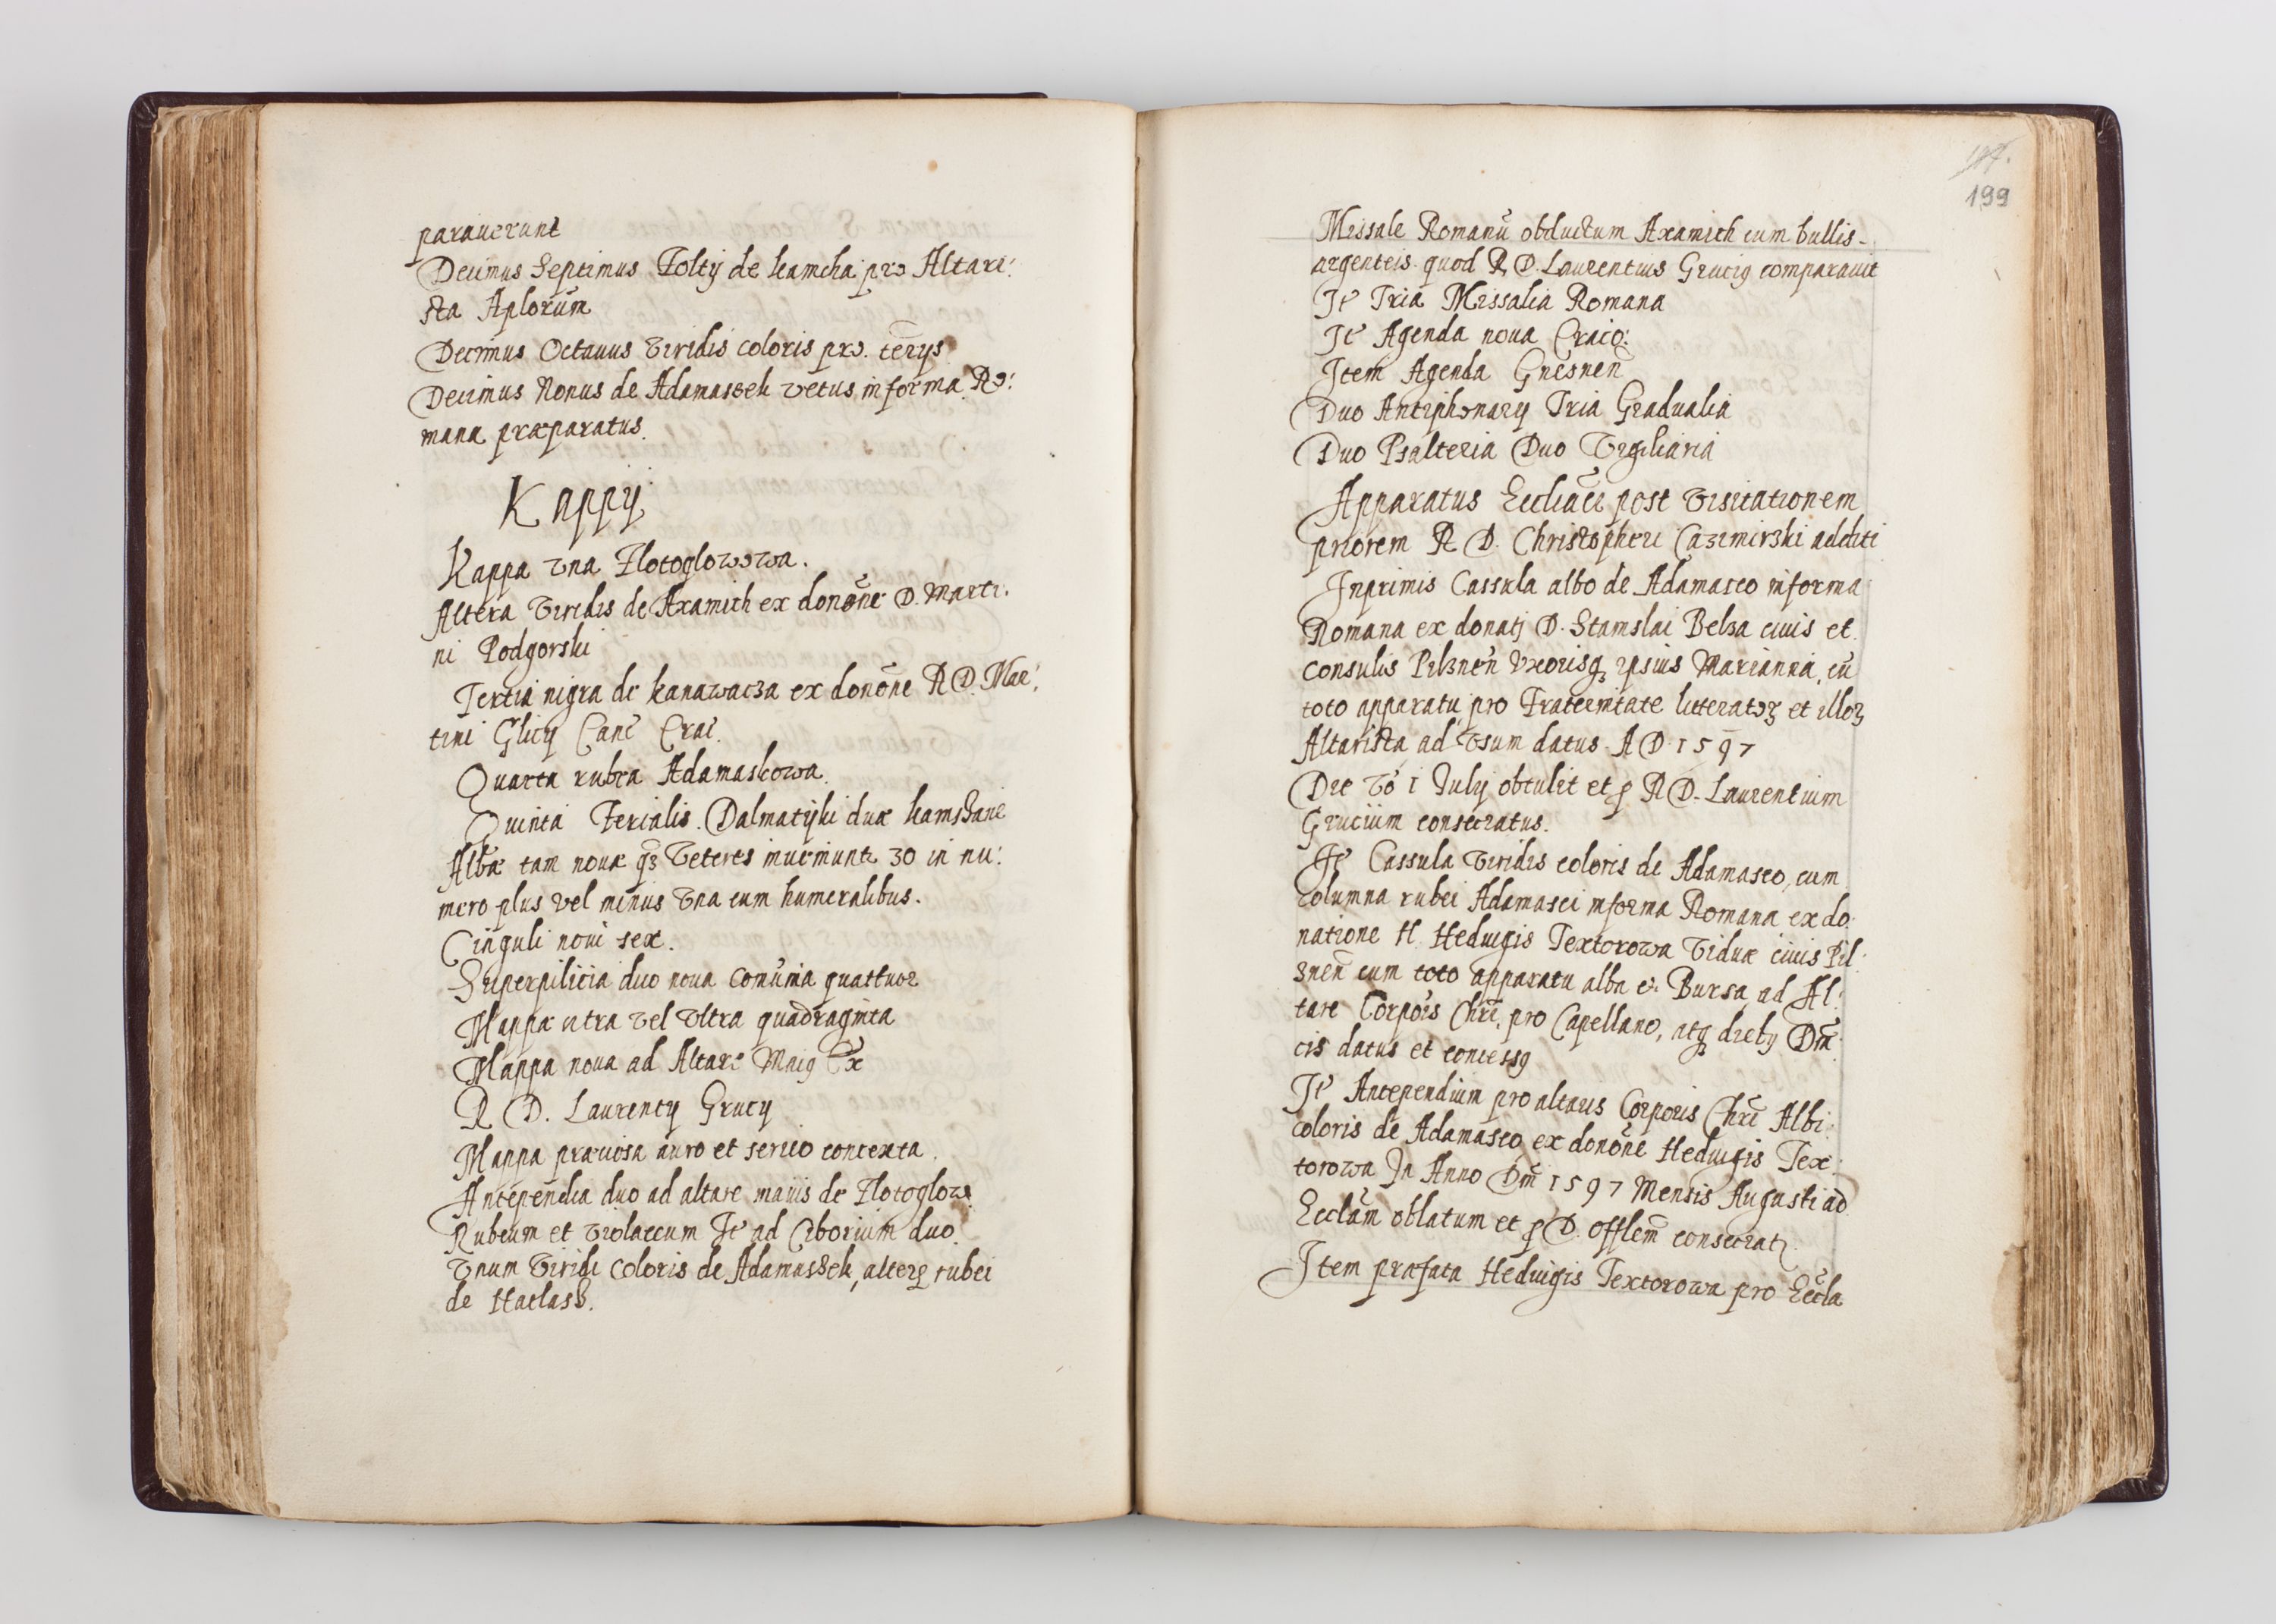 parauerunt
Decimus Septimus Zolty de kamcha pro Altari:
sta Aplorum
Decimus Octauus Viridis coloris pro. ferys
Decimus Nonus de Adamaszek vetus in forma Ro:
mana præparatus.
Kappy
Kappa vna Zlotoglowowa.
Altera Viridis de Axamith ex donōne D. Marti.
ni Podgorski
Tertia nigra de kanawacza ex donōne R D. Mar:
tini Glicy Canc Crac.
Quarta rubra Adamaskowa.
Quinta Ferialis. Dalmatyki duæ kamszane
Albæ tam nouæ qz Veteres inueniuntr 30 in nu:
mero plus vel minus Vna cum humeralibus.
Cinguli noui sex.
Superpilicia duo noua comunia quattuor
Mappæ citra vel Vltra quadraginta
Mappa noua ad Altare Maig Ex
R D. Laurenty Grucy
Mappa præciosa auro et serico contexta.
Antependia duo ad altare maius de Zlotoglow
Rubeum et violaceum It ad Ciborium duo
Vnum Viridi coloris de Adamaszek, alterg rubei
de Hatlasz.
199
Missale Romanū obductum Axamith cum bullis
argenteis quod R D. Laurentius Grucig comparauit
It Tria Missalia Romana
It Agenda noua Craco:
Item Agenda Gnesnen
Duo Antiphonary Tria Gradualia
Duo Psalteria Duo Vigiliaria
Apparatus Eccliaci post Visitationem
priorem R D. Christopheri Cazimirski additi
Inprimis Cassula albo de Adamasco in forma
Romana ex donatj D. Stanislai Belza ciuis et
consulis Pilznen Vxorisq ipsius Marianna, cū
toto apparatu pro Fraternitate litteratoz et illoz
Altarista ad Vsum datus A D 1597
Die Vo 1 July obtulit et p R D. Laurentium
Grucium consecratus.
It Cassula Viridis coloris de Adamasco, cum
columna rubei Adamasci in forma Romana ex do:
natione H. Heduigis Textorowa Viduæ ciuis Pil:
znen cum toto apparatu alba et Bursa ad Al:
tare Corpois Chri, pro Capellano, atq dieby Dm̄
cis datus et concessg
It Antependium pro altaris Corporis Chri Albi:
coloris de Adamasco ex donōne Heduigis Tex:
torowa In Anno Dm̄ 1597 Mensis Augusti ad
Ecclām oblatum et p D. Offlem consecratj.
Item præfata Heduigis Textorowa pro Eccla